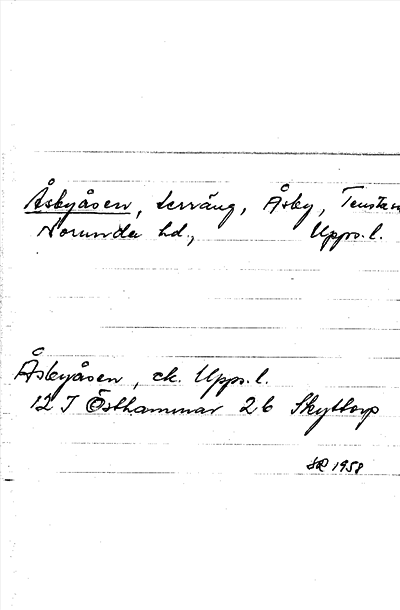 Åsbyåsen, terräng, Åsby, Tensta sn
Norunda hd., Upps. l.
Åsbyåsen, ek. Upps. l.
12 I Östhammar 2b Skyttorp
SR 1958